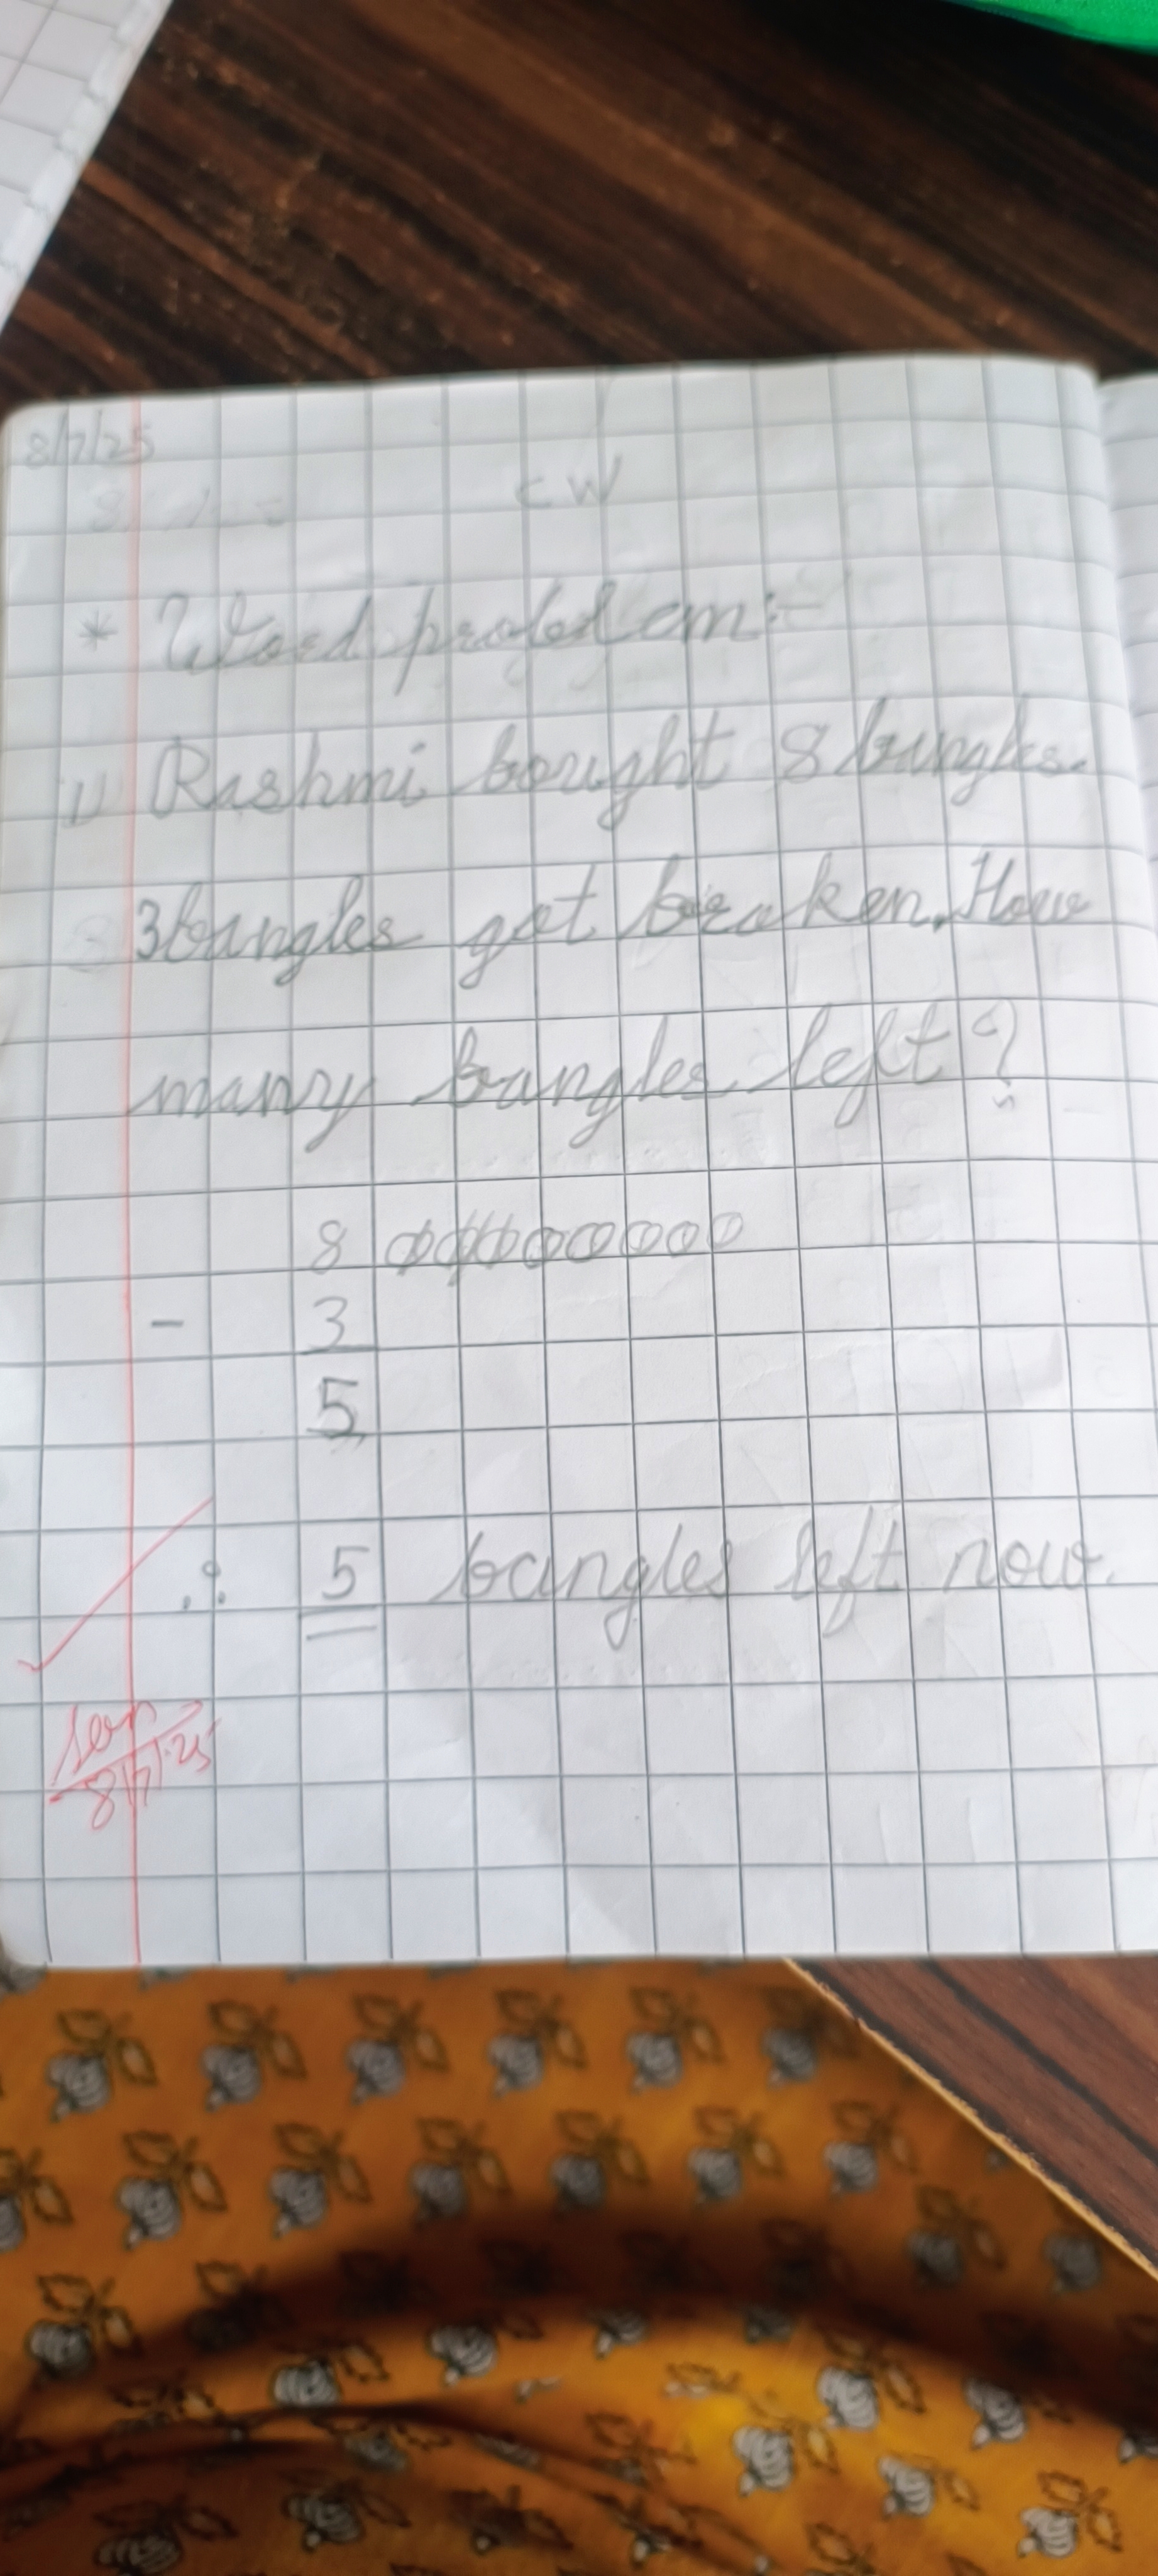 8/7/25
CW
* Word problem:-
1) Rashmi bought 8 bangles.
3 bangles got broken. How
many bangles left?
8 00000000
- 3
5
∴ 5 bangles left now.
8/7/25